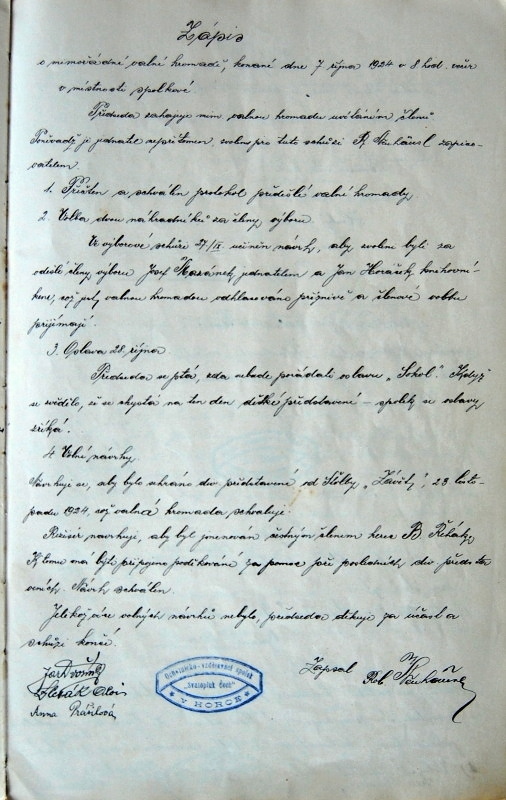 Zápis
o mimořádné valné hromadě, konané dne 7 října 1924 v 8 hod. večer
v místnosti spolkové
Předseda zahajuje mim. valnou hromadu uvítáním členů
Poněvadž je jednatel nepřítomen, zvolen pro tuto schůzi R. zapiso-
vatelem.
1. Přečten a schválen protokol předešlé valné hromady.
2. Volba dvou náhradníků za členy výboru.
Ve výborové schůzi 27/IX učiněn návrh, aby zvoleni byli za
odešlé členy výboru Josef jednatelem a Jan Horáček, knihovní-
kem, což jest valnou hromadou odhlasováno příznivě a členové volbu
přijímají.
3. Oslava 28. října
Předseda se ptá, zda nebude pořádati oslavu "Sokol". Když
se zvědělo, že se chystá na ten den dětské představení – spolek se oslavy
zříká.
4. Volné návrhy.
Navrhuje se, aby bylo sehráno div. představení od "Závěť", 23 listo-
padu 1924, což valná hromada schvaluje.
Režisér navrhuje, aby byl jmenován řádným členem herec B. Řehák,
K tomu má býti připojeno poděkování za pomoc při posledních div. předsta-
veních. Návrh schválen.
Jelikož více volných návrhů nebylo, předseda děkuje za účast a
schůzi končí.
Alois
Anna Prášilová
Ochotnicko-vzdělávací spolek
"Svatopluk Čech"
V HORCE
Zapsal
Rob.